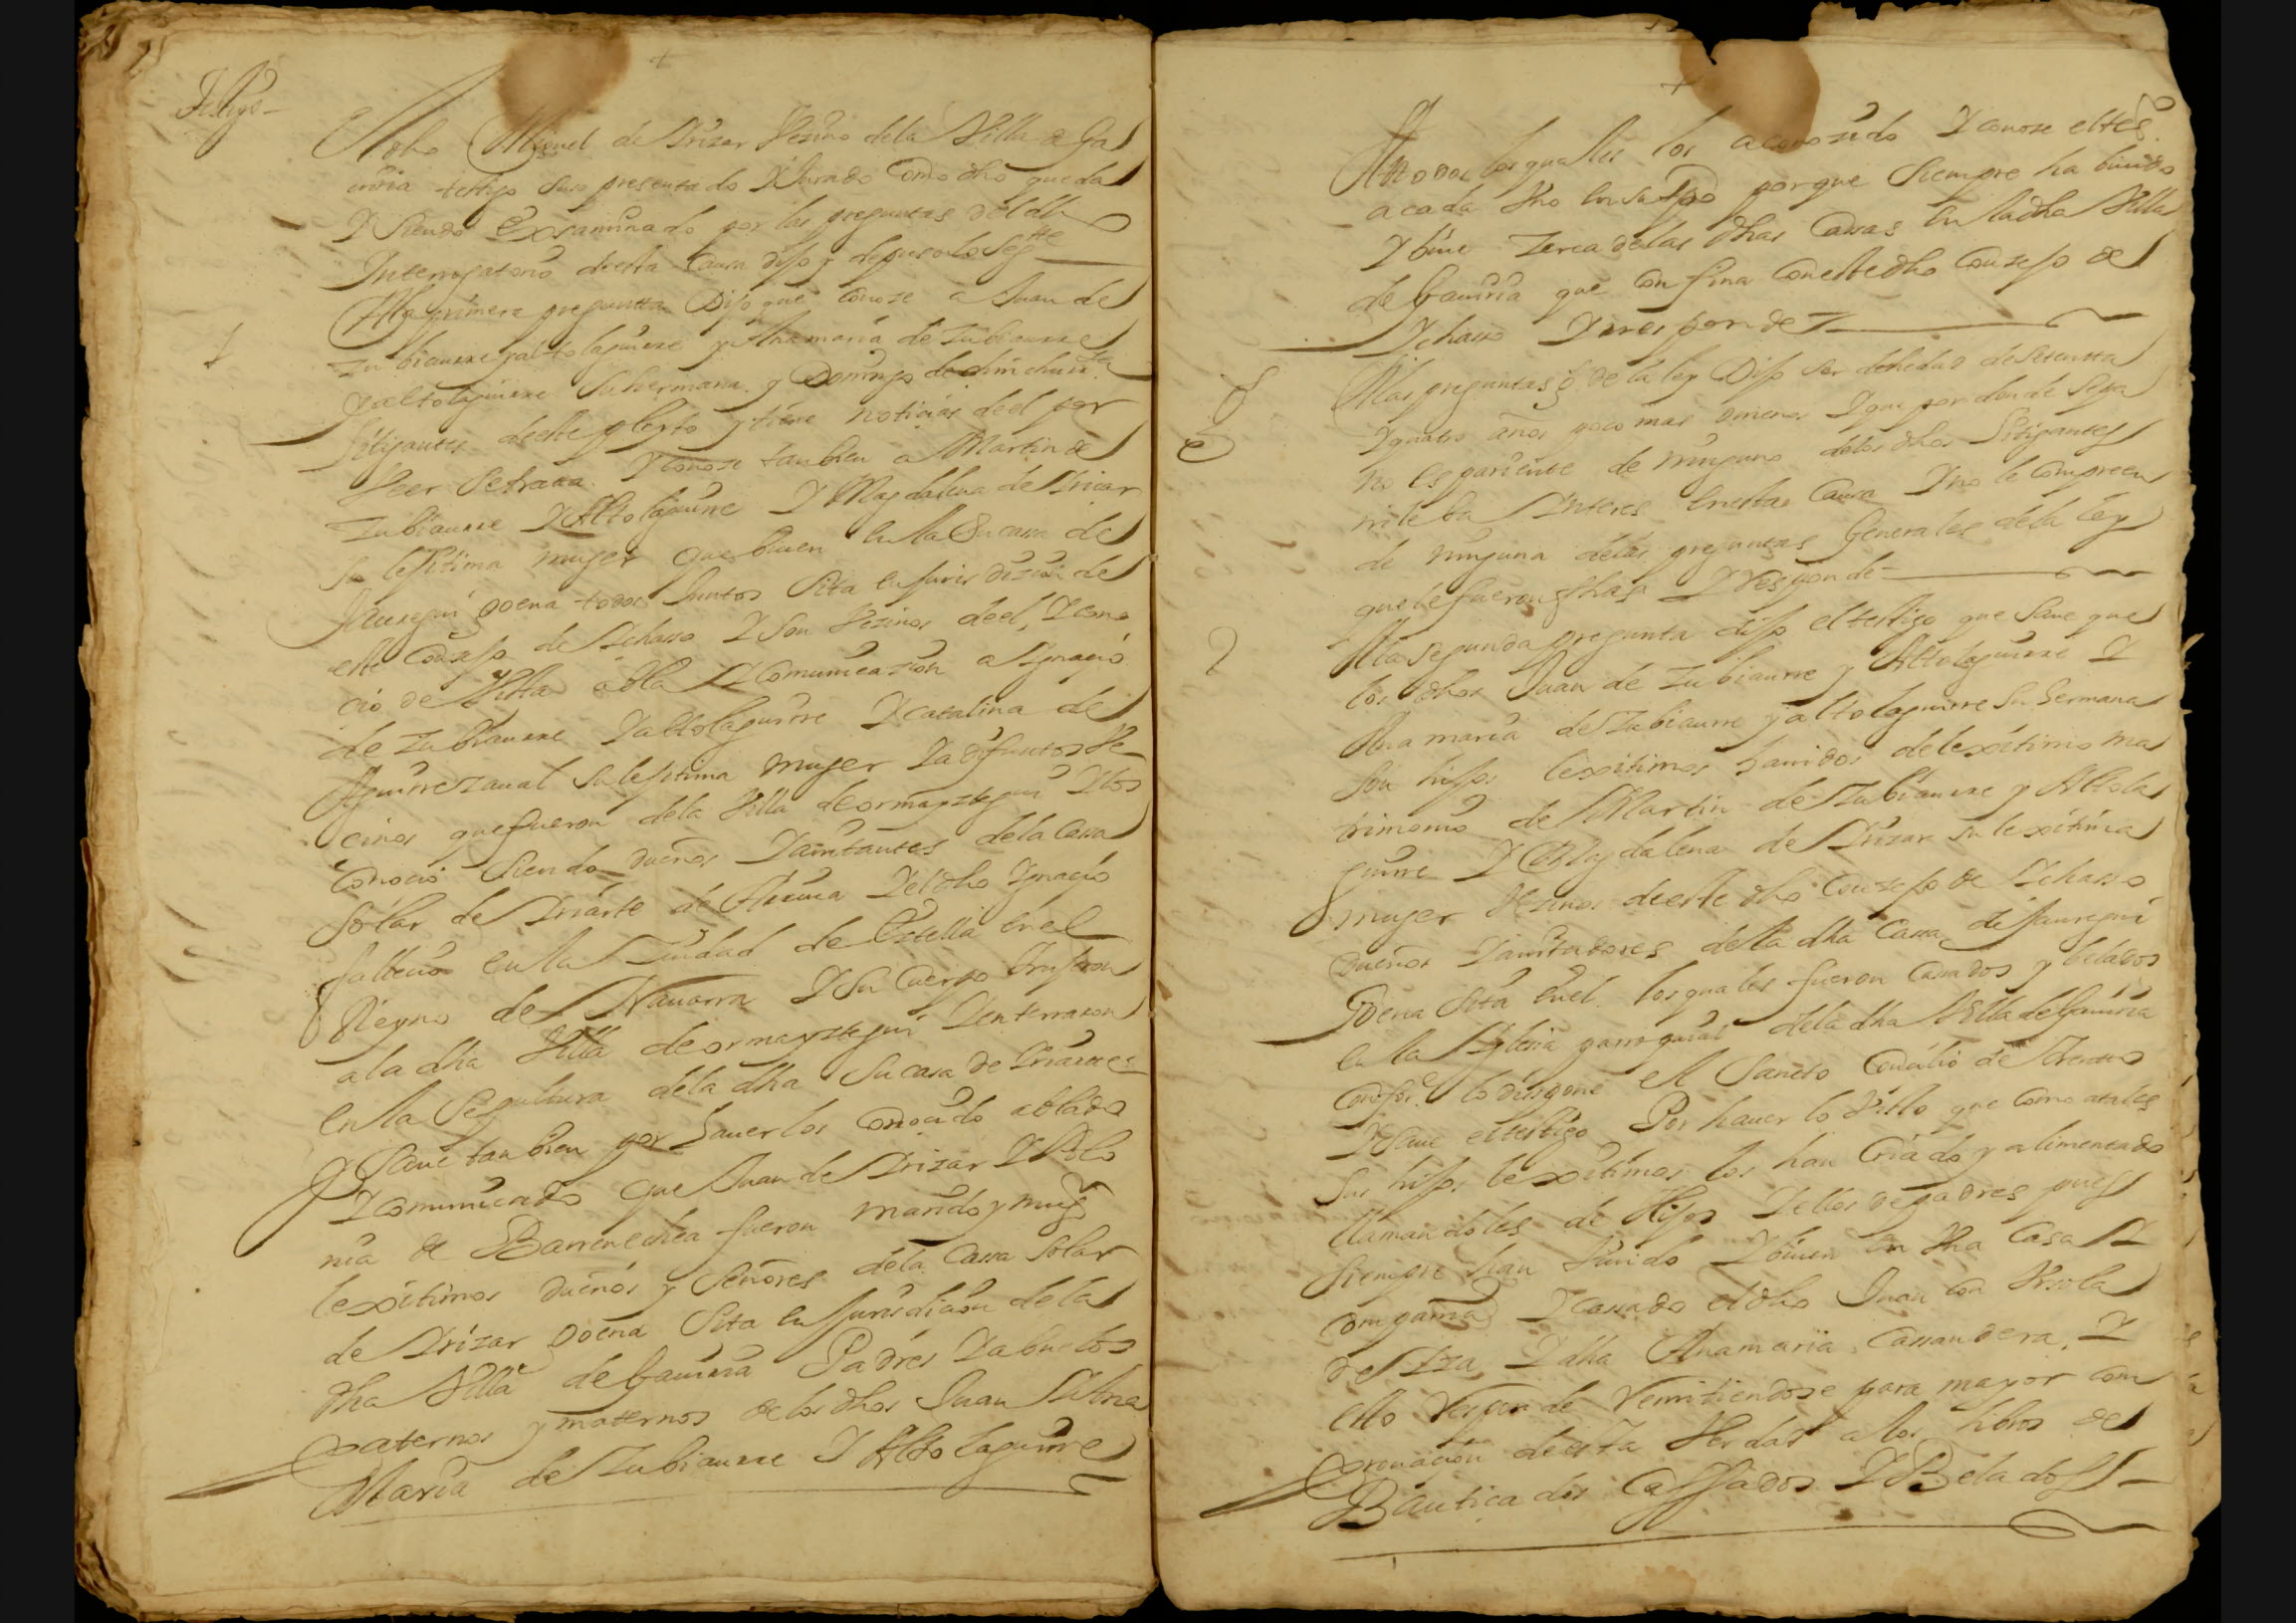 Testigo
El dho Miguel de Irizar Vezino dela Villa de Ga
uiria testigo suso presentado Y Jurado Como dho queda
Y Siendo Examinado por las preguntas del dho
Interrogatorio de esta Causa dijo y depuso lo Sigte
1
Ala primera pregunta Dijo que conoze a Juan de
Zubiaurre y altolaguirre y Ana maria de Zubiaurre
y altolaguirre su hermana y Domingo de
litigantes de este pleyto y tiene noticias de el por
Conoze tanbien a Martin de
Zubiaurre Y Altolaguirre Y Magdalena de Irizar
su lejitima muger que biuen en la Su casa de
Jauregui goena todos Juntos Sita en Jurisdizion de
este Conzejo de Ichasso Y Son Vezinos de el, Y cono
cio de Vista abla Y Comunicazion a Ignacio
de Zubiaurre Y altolaguirre Y Catalina de
Aguirrezaual su lejitima muger Ya difuntos Ve
cinos que fueron dela Villa de ormayztegui Y los
conocio Siendo dueños Y auitantes dela Cassa
Solar de Iriarte de Y el dho Ignacio
fallecio en la Ziudad de Estella en el
Reyno de Nauarra Y Su Cuerpo trujeron
a la dha Villa de ormayztegui Y enterraron
en la Sepultura dela dha Su casa de Iriarte
Y Saue tanbien por hauerlos conocido ablado
Y comunicado que Juan de Irizar Y Polo
nia de Barrenechea fueron marido y muger
lexitimos dueños y Señores dela Cassa Solar
de Irizar goena Sita en Jurisdicion dela
dha Villa de Gauiria Padres Y abuelos
paternos y maternos de los dhos Juan Y Ana
Maria de Zubiaurre Y Altolaguirre
A todos los quales los a conozido Y conoze el tesgo
a cada Vno en su tpo porque Siempre ha biuido
Y biue zerca de las dhas Cassas en la dha Villa
de Gauiria que Confina Con este dho Conzejo de
Ichasso Y responde
A las preguntas g. de la ley Dijo ser de hedad de Setentta
Y quatro años poco mas omenos Y que por donde
no es pariente de ninguno delos dhos Litigantes
ni le ba Interes en esta Causa Y no le Compreen
de ninguna delas preguntas Generales dela ley
que le fueron fhas Y Responde
2
A la segunda pregunta dijo el testigo que Saue que
los dhos Juan de Zubiaurre y Altolaguirre Y
Ana maria de Zubiaurre y altolaguirre Su hermana
Son hijos lexitimos hauidos de lexitimo ma
trimonio de Martin de Zubiaurre y Altola
guirre Y Magdalena de Irizar su lexitima
muger Vezinos de este dho Conzejo de Ichasso
dueños Y auitadores dela dha Cassa de Jauregui
goena Sita en el los quales fueron Casados y belados
en la Iglesia parroquial dela dha Villa de Gauiria
Confor. lo dispone el Sancto Concilio de Trento
Y Saue el testigo Por hauer lo Visto que Como atales
Sus hijos lexitimos los han Criado y alimentado
llamandoles de Hijos Y ellos de padres pues
Siempre han Viuido Y biuen en Vna Casa Y
compañia Y Cassado el dho Juan con Vrsola
de Y dha Ana maria Cassandera, Y
esto Responde Remitiendose para mayor com
prouacion de esta Verdad a los libros de
Bauticados Cassados Y Belados